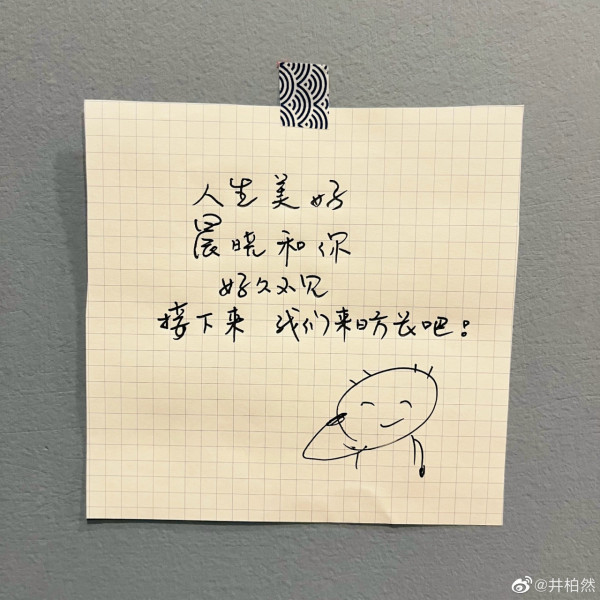 人生美好
晨晓和你
好久不见
接下来 我们来日方长吧!
@井柏然